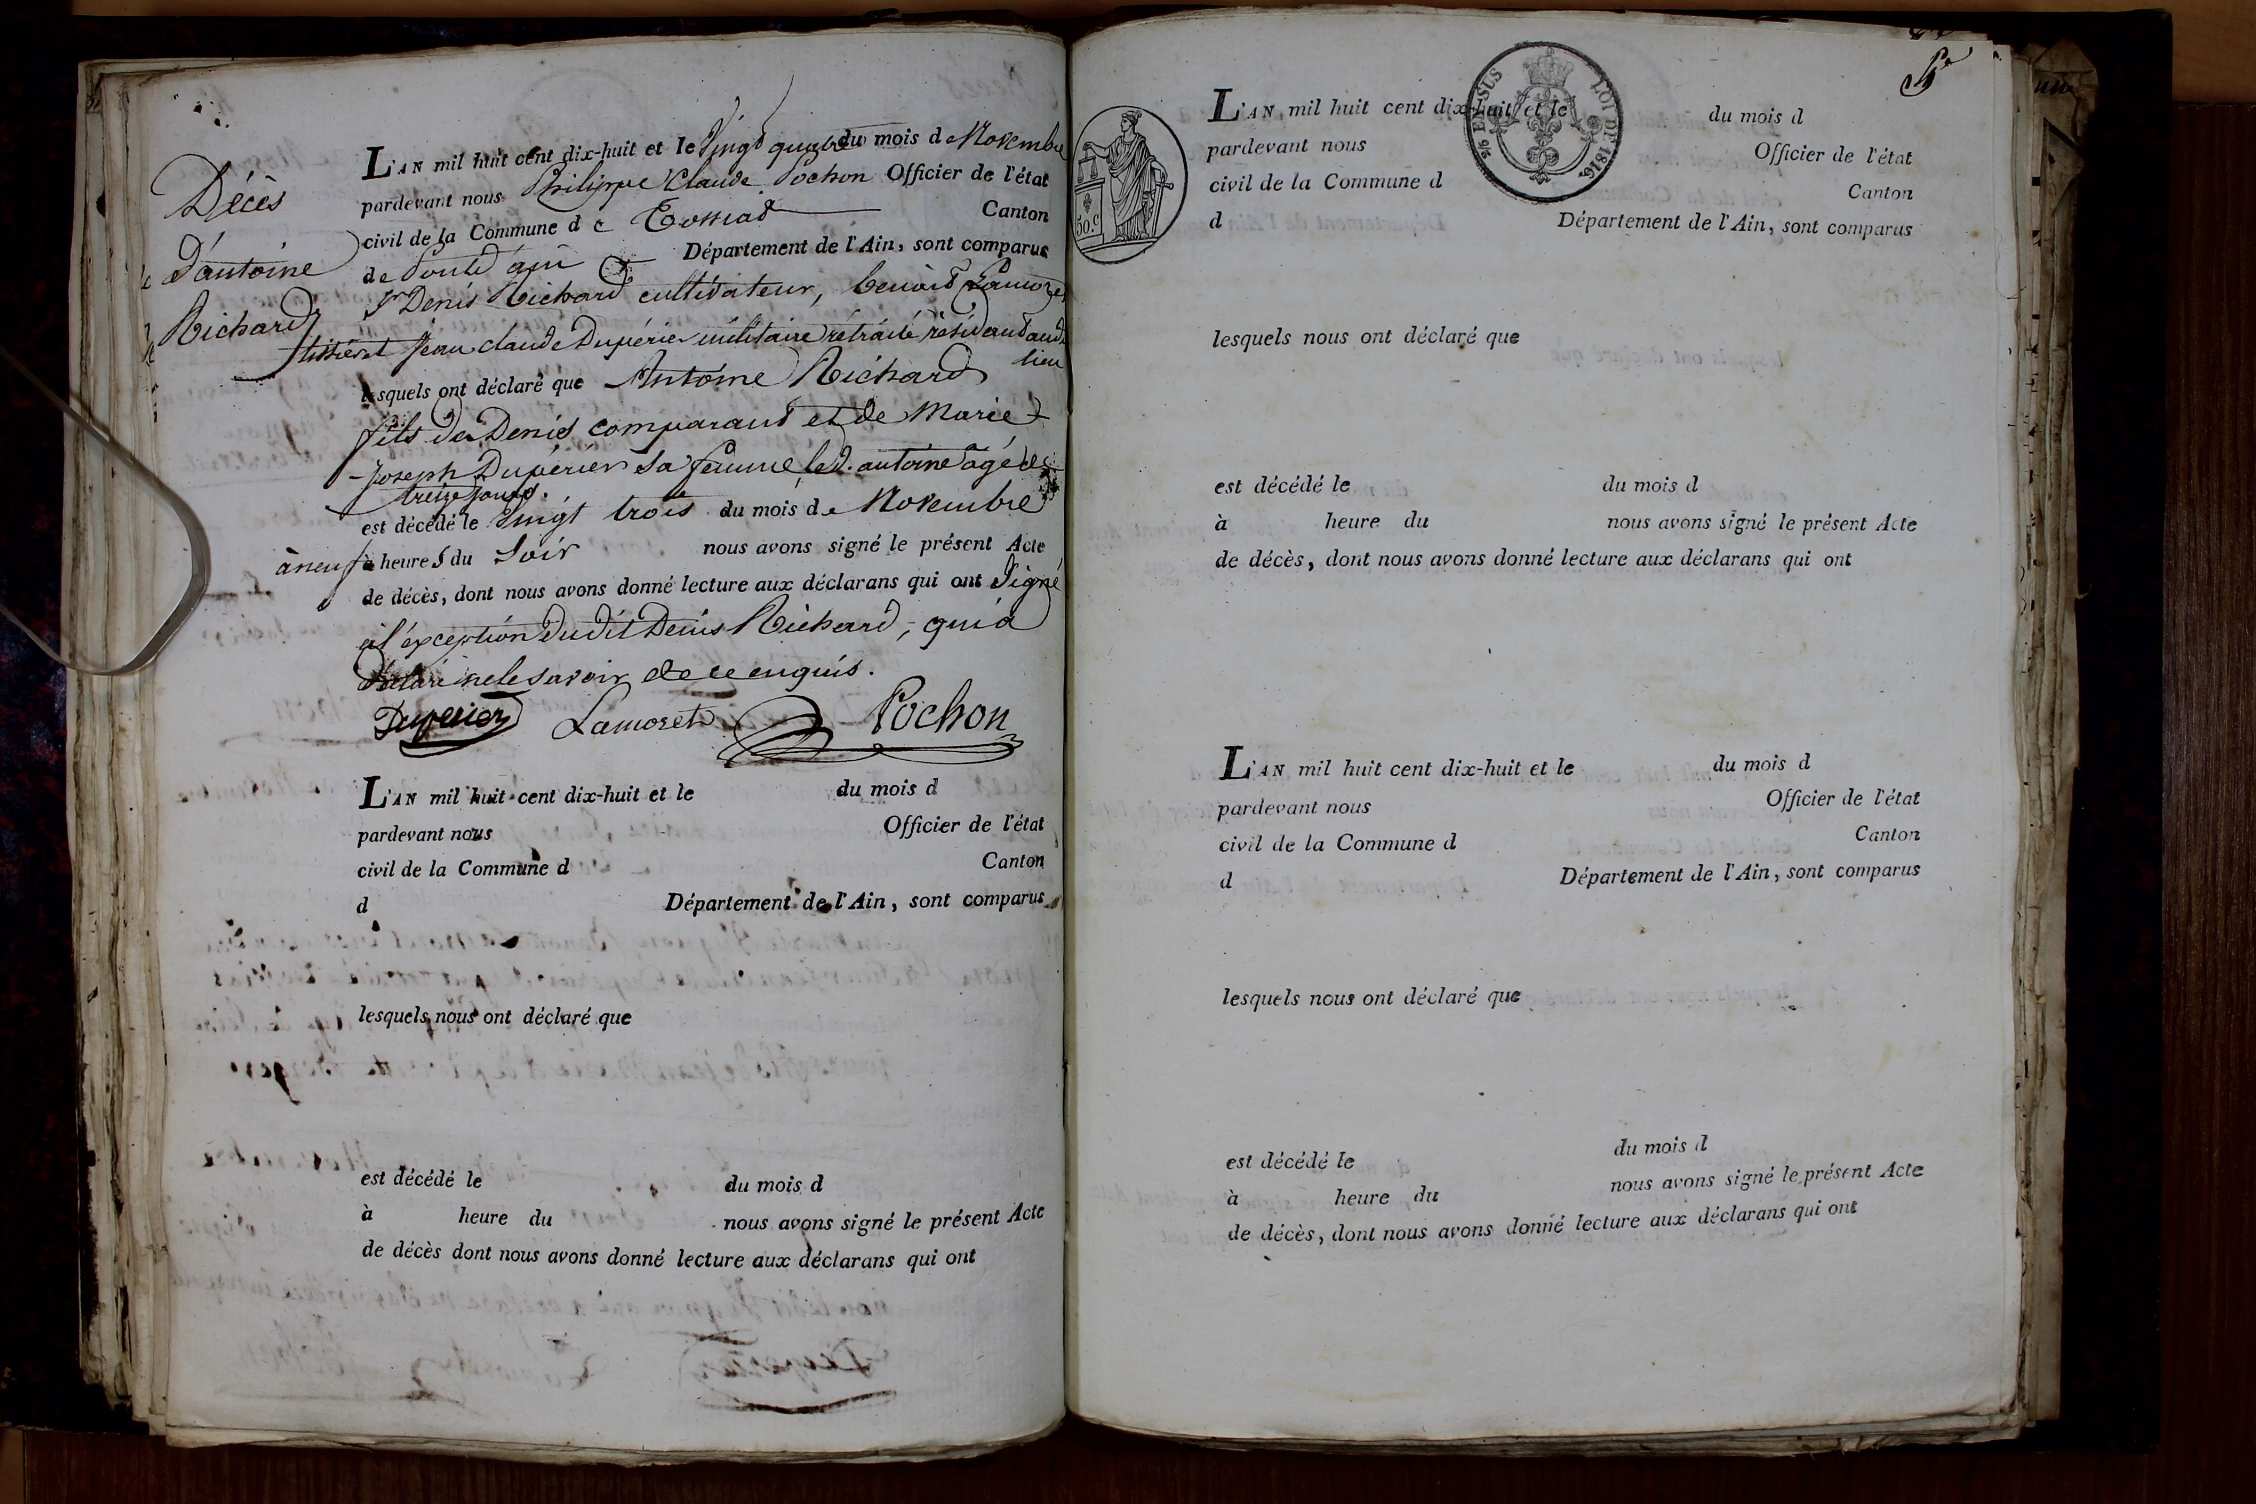 Décès
d'antoine
Richard
L'AN mil huit cent dix-huit et le Vingt quatre du mois de Novembre
pardevant nous Philippe Claude Pochon Officier de l'état
civil de la Commune de Tossiat Canton
de Pont d'ain Département de l'Ain, sont comparus
Sr Denis Richard cultivateur, benoit Lamoret
tissier et Jean claude Dupérier militaire rétraité résidant aud.
lieu
lesquels ont déclaré que Antoine Richard
fils de Denis comparant et de Marie
Joseph Dupérier sa femme led. antoine agé de
treize jours.
est décédé le vingt trois du mois de Novembre
à neuf à heures du Soir nous avons signé le présent Acte
de décès, dont nous avons donné lecture aux déclarans qui ont Signé
à l'éxception dudit Denis Richard, qui a
déclaré ne le savoir de ce enquis.
Duperier Lamoret Pochon
L'AN mil huit cent dix-huit et le du mois d
pardevant nous Officier de l'état
civil de la Commune d Canton
d Département de l'Ain, sont comparus
lesquels nous ont déclaré que
est décédé le du mois d
à heure du nous avons signé le présent Acte
de décès dont nous avons donné lecture aux déclarans qui ont
50.c
EN SUS
LOI DE 1816.
L'AN mil huit cent dix-huit et le du mois d
pardevant nous Officier de l'état
civil de la Commune d Canton
d Département de l'Ain, sont comparus
lesquels nous ont déclaré que
est décédé le du mois d
à heure du nous avons signé le présent Acte
de décès, dont nous avons donné lecture aux déclarans qui ont
L'AN mil huit cent dix-huit et le du mois d
pardevant nous Officier de l'état
civil de la Commune d Canton
d Département de l'Ain, sont comparus
lesquels nous ont déclaré que
est décédé le du mois d
à heure du nous avons signé le présent Acte
de décès, dont nous avons donné lecture aux déclarans qui ont